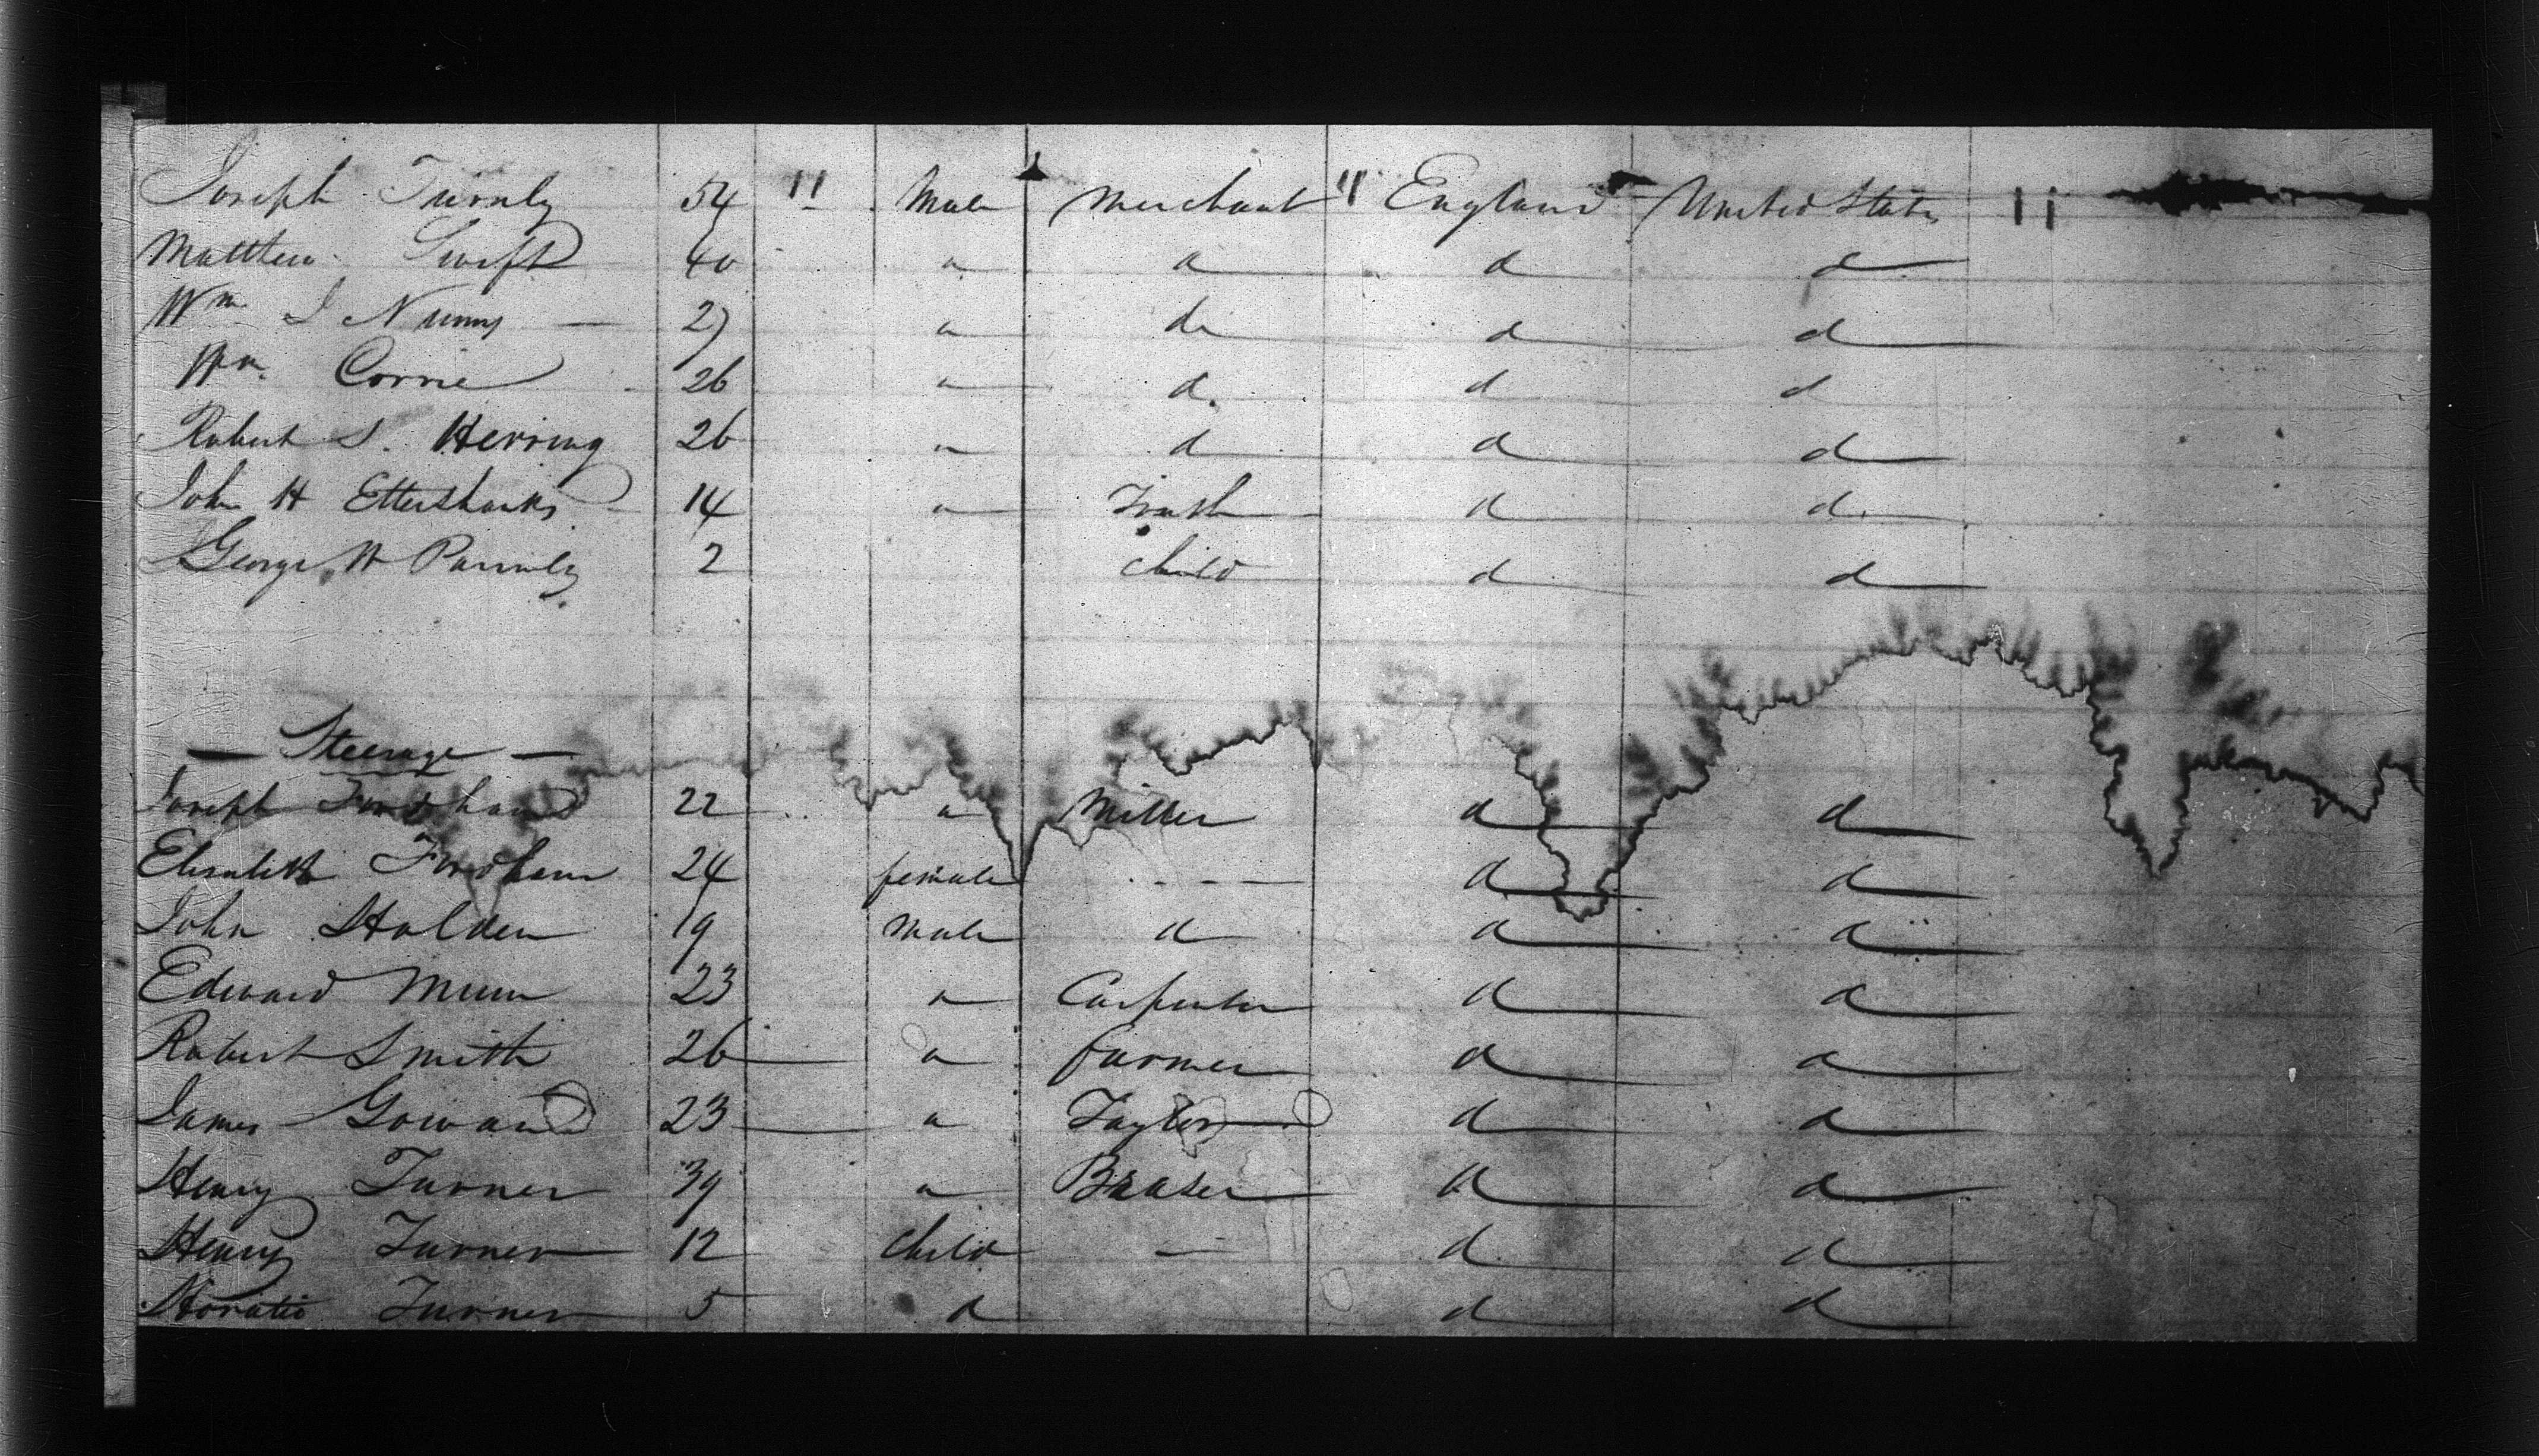 Joseph Turnly 54 " Male Merchant " England United States "
Matthew Swift 40 " d d d
Wm J Nunns 27 " do d d
Wm. Corrie 26 " d. d d
Robert S. Herring 26 " d d d
John H Ettershanks 14 " d d
George W Parmly 2 child d d
— Steerage —
Joseph Fordham 22 " Miller d d
Elisabeth Fordham 24 female - - - d d
John Holden 19 Male d d d
Edward Munn 23 " Carpenter d d
Robert Smith 26 " farmer d d
James Gowan 23 " Taylor d d
Henry Turner 39 " d d
Henry Turner 12 Child — d d
Horatio Turner 5 d d d